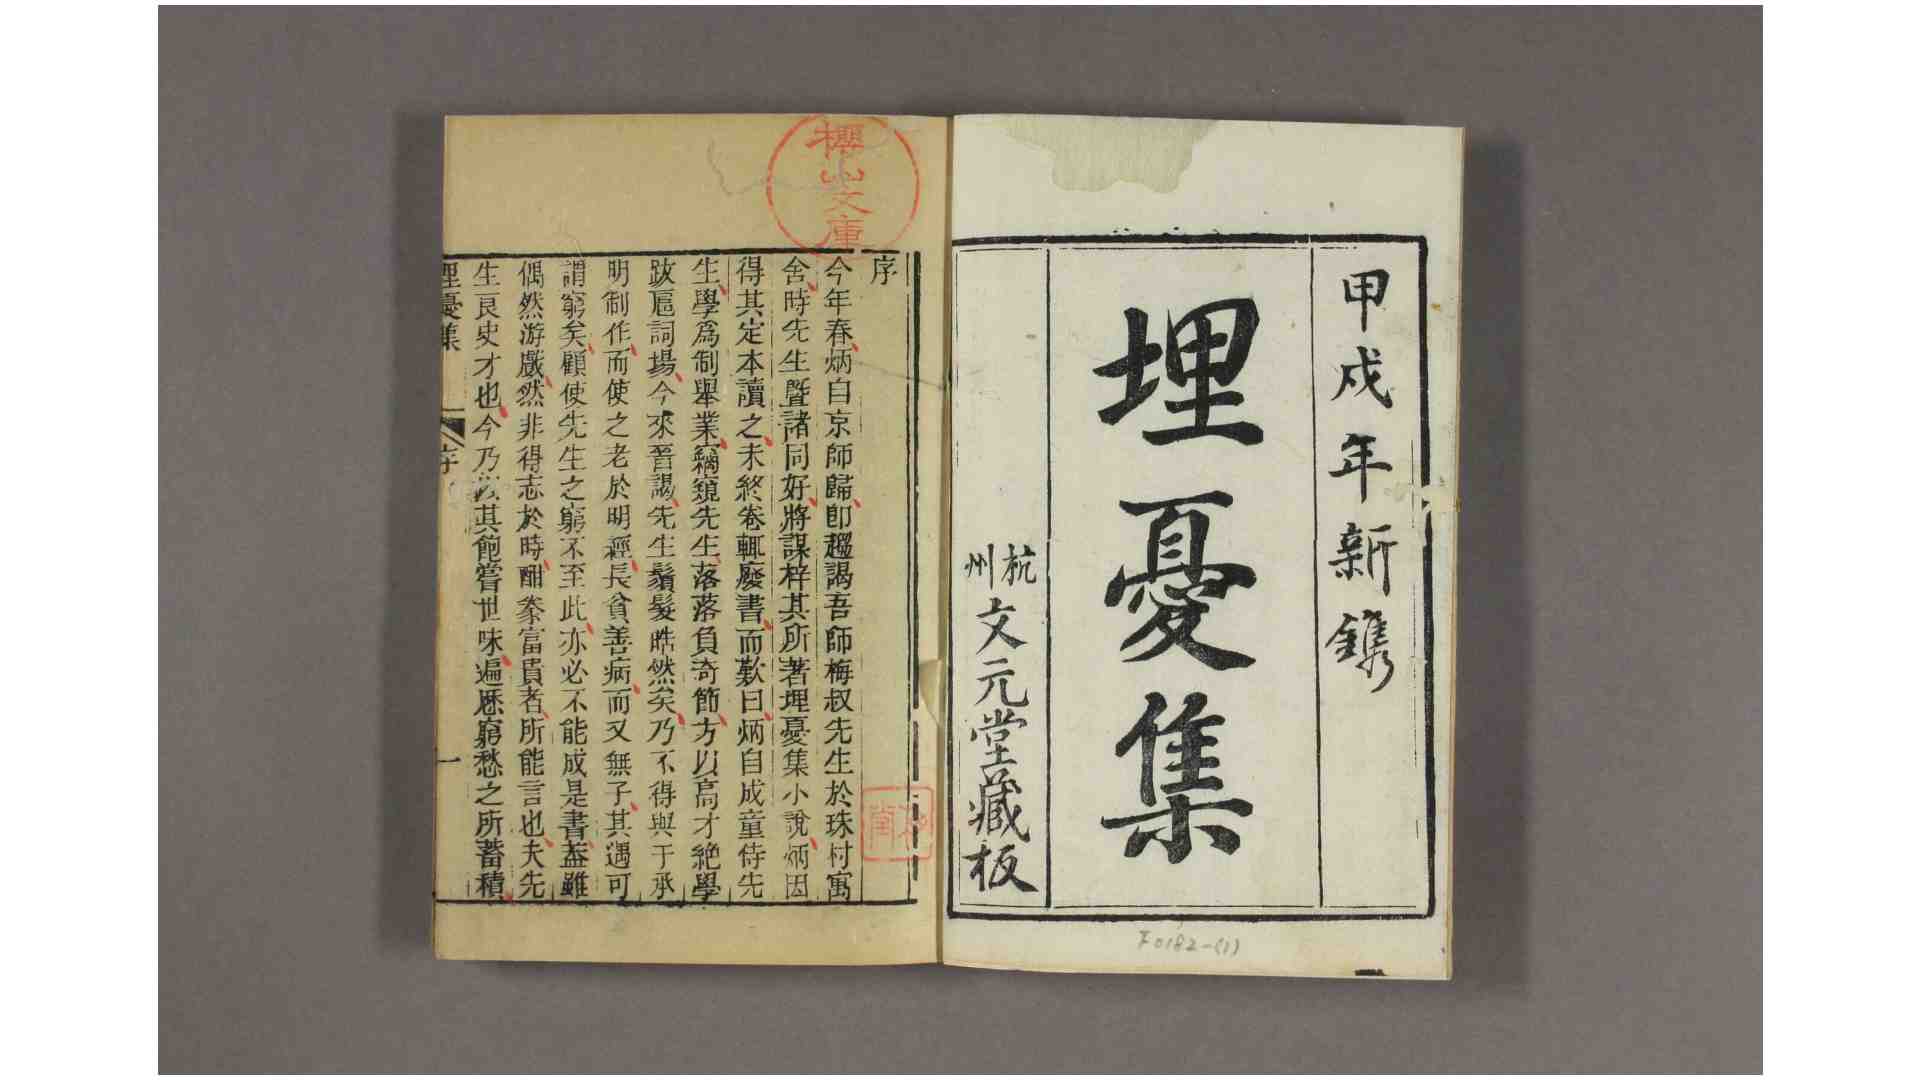 甲戌年新鐫
埋憂集
杭州文元堂藏板
F0182-(1)
櫻山文庫
序
今年春炳自京師歸卽趨謁吾師梅叔先生於珠村寓
舍時先生曁諸同好將謀梓其所著埋憂集小說炳因
得其定本讀之未終卷輒廢書而歎曰炳自成童侍先
生學爲制舉業竊窺先生落落負奇節方以高才絶學
跋扈詞場今來晉謁先生鬚髮皓然矣乃不得與于承
明制作而使之老於明經長貧善病而又無子其遇可
謂窮矣顧使先生之窮不至此亦必不能成是書葢雖
偶然游戲然非得志於時酣豢富貴者所能言也夫先
生良史才也今乃以其飽嘗世味遍歷窮愁之所蓄積
埋憂集
序
一